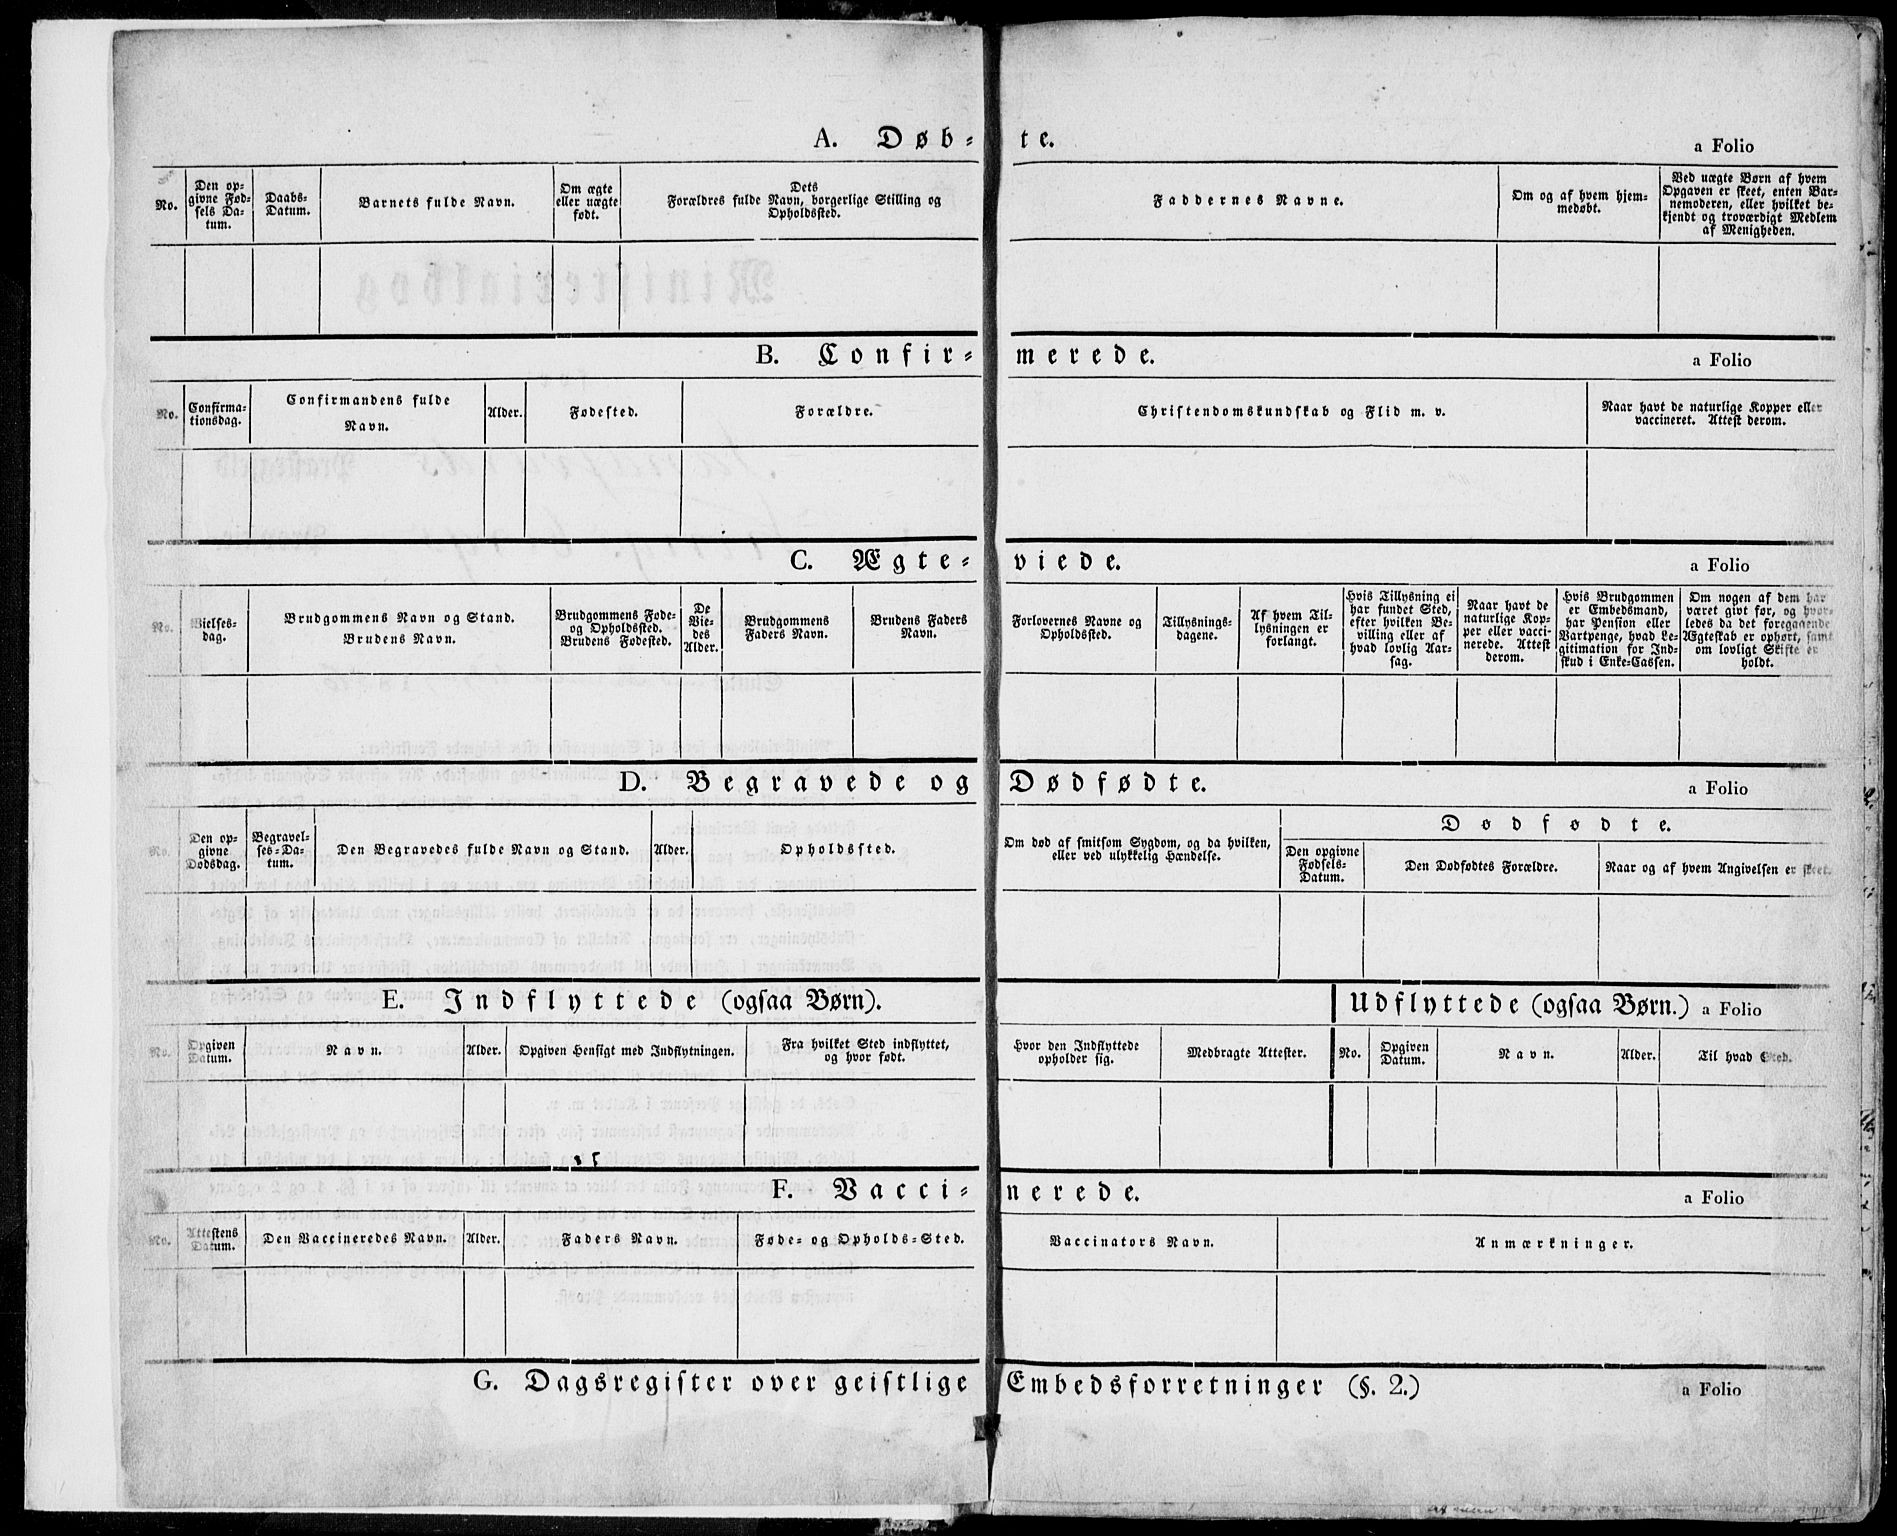 A. Døb-te. a Folio
No.
Den op-
givne Fød-
sels Da-
tum.
Daabs-
Datum.
Barnets fulde Navn.
Om ægte
eller uægte
født.
Dets
Forældres fulde Navn, borgerlige Stilling og
Opholdssted.
Faddernes Navne.
Om og af hvem hjem-
medøbt.
Ved uægte Børn af hvem
Opgaven er skeet, enten Bar-
nemoderen, eller hvilket be-
kjendt og troværdigt Medlem
af Menigheden.
B. Confir-merede. a Folio
No.
Confirma-
tionsdag.
Confirmandens fulde
Navn.
Alder.
Fødested.
Forældre.
Christendomskundskab og Flid m. v.
Naar havt de naturlige Kopper eller
vaccineret. Attest derom.
C. Ægte-viede. a Folio
No.
Vielses-
dag.
Brudgommens Navn og Stand.
Brudens Navn.
Brudgommens Føde-
og Opholdssted.
Brudens Fødested.
De
Vie-
des
Alder.
Brudgommens
Faders Navn.
Brudens Faders
Navn.
Forlovernes Navne og
Opholdssted.
Tillysnings-
dagene.
Af hvem Til-
lysningen er
forlangt.
Hvis Tillysning ei
har fundet Sted,
efter hvilken Be-
villing eller af
hvad lovlig Aar-
sag.
Naar havt de
naturlige Kop-
per eller vacci-
nerede. Attest
derom.
Hvis Brudgommen
er Embedsmand,
har Pension eller
Vartpenge, hvad Le-
gitimation for Ind-
skud i Enke-Cassen.
Om nogen af dem har
været givt før, og hvor-
ledes da det foregaaende
Ægteskab er ophørt, samt
om lovligt Skifte er
holdt.
D. Begravede og Dødfødte. a Folio
No.
Den op-
givne
Dødsdag.
Begravel-
ses-Da-
tum.
Den Begravedes fulde Navn og Stand.
Alder.
Opholdssted.
Om død af smitsom Sygdom, og da hvilken,
eller ved ulykkelig Hændelse.
Dødfødte.
Den opgivne
Fødsels-
Datum.
Den Dødfødtes Forældre.
Naar og af hvem Angivelsen er skeet.
E. Indflyttede (ogsaa Børn). Udflyttede (ogsaa Børn.) a Folio
No.
Opgiven
Datum.
Navn.
Alder.
Opgiven Hensigt med Indflytningen.
Fra hvilket Sted indflyttet,
og hvor født.
Hvor den Indflyttede
opholder sig.
Medbragte Attester.
No.
Opgiven
Datum.
Navn.
Alder.
Til hvad Sted.
F. Vacci-nerede. a Folio
No.
Attestens
Datum.
Den Vaccineredes Navn.
Alder.
Faders Navn.
Føde- og Opholds-Sted.
Vaccinators Navn.
Anmærkninger.
G. Dagsregister over geistlige Embedsforretninger (§. 2.) a Folio